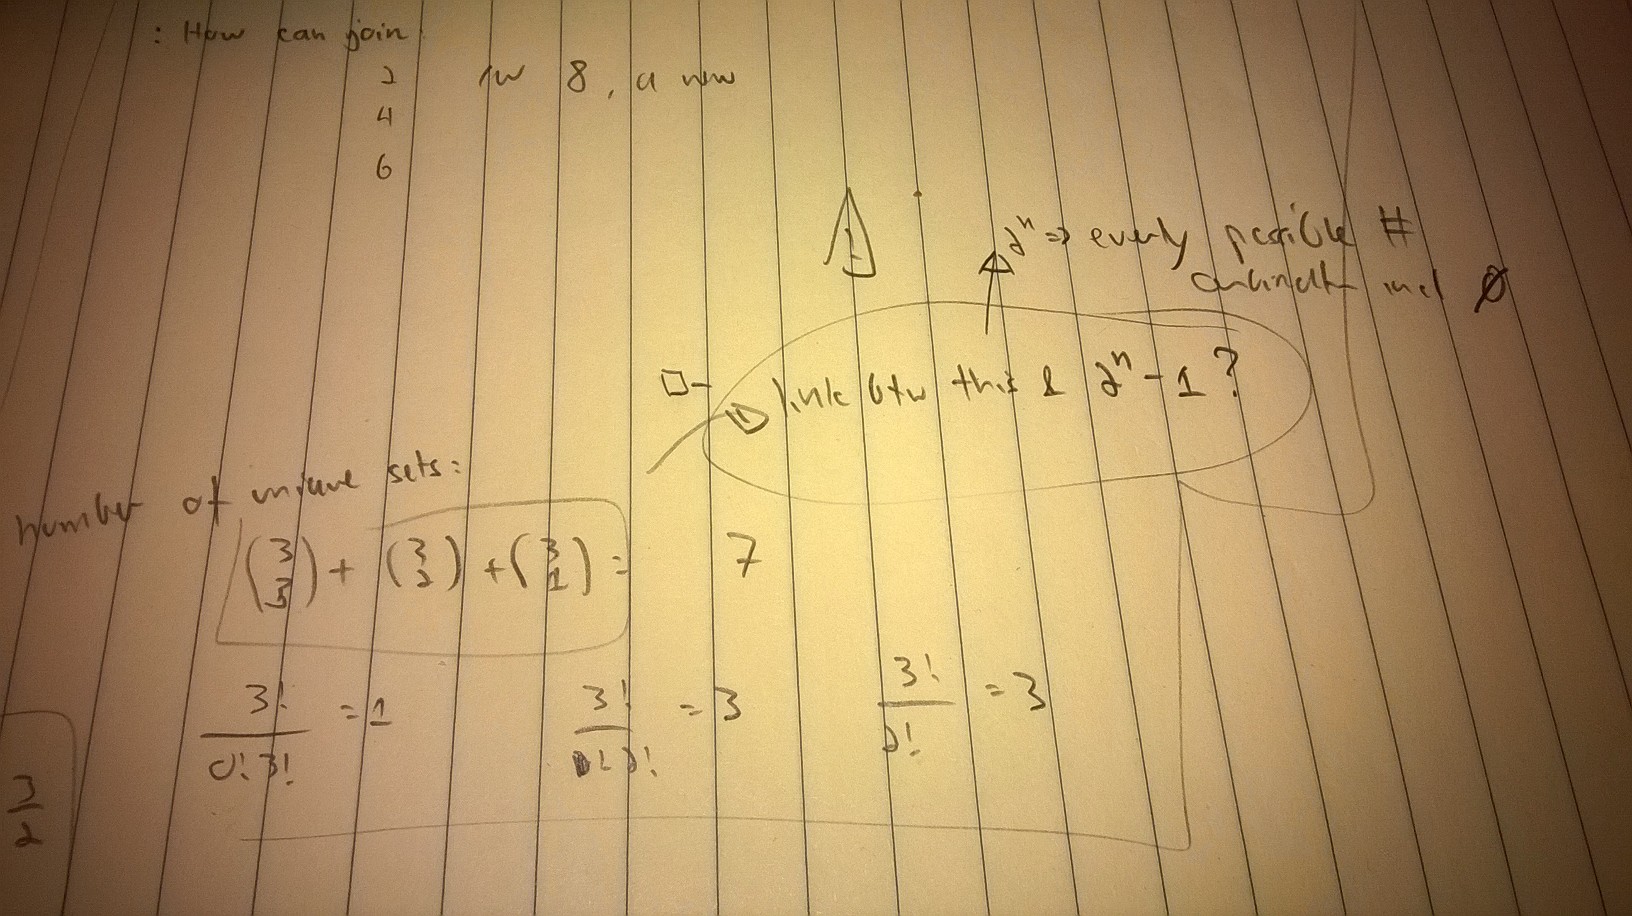 : How can join
2 for 8, a new
4
6
2ⁿ => every possible #
incl ∅
link btw this & 2ⁿ - 1 ?
number of unique sets:
(3 3) + (3 2) + (3 1) = 7
3!/0!3! = 1 3!/1!2! = 3 3!/2! = 3
3/2